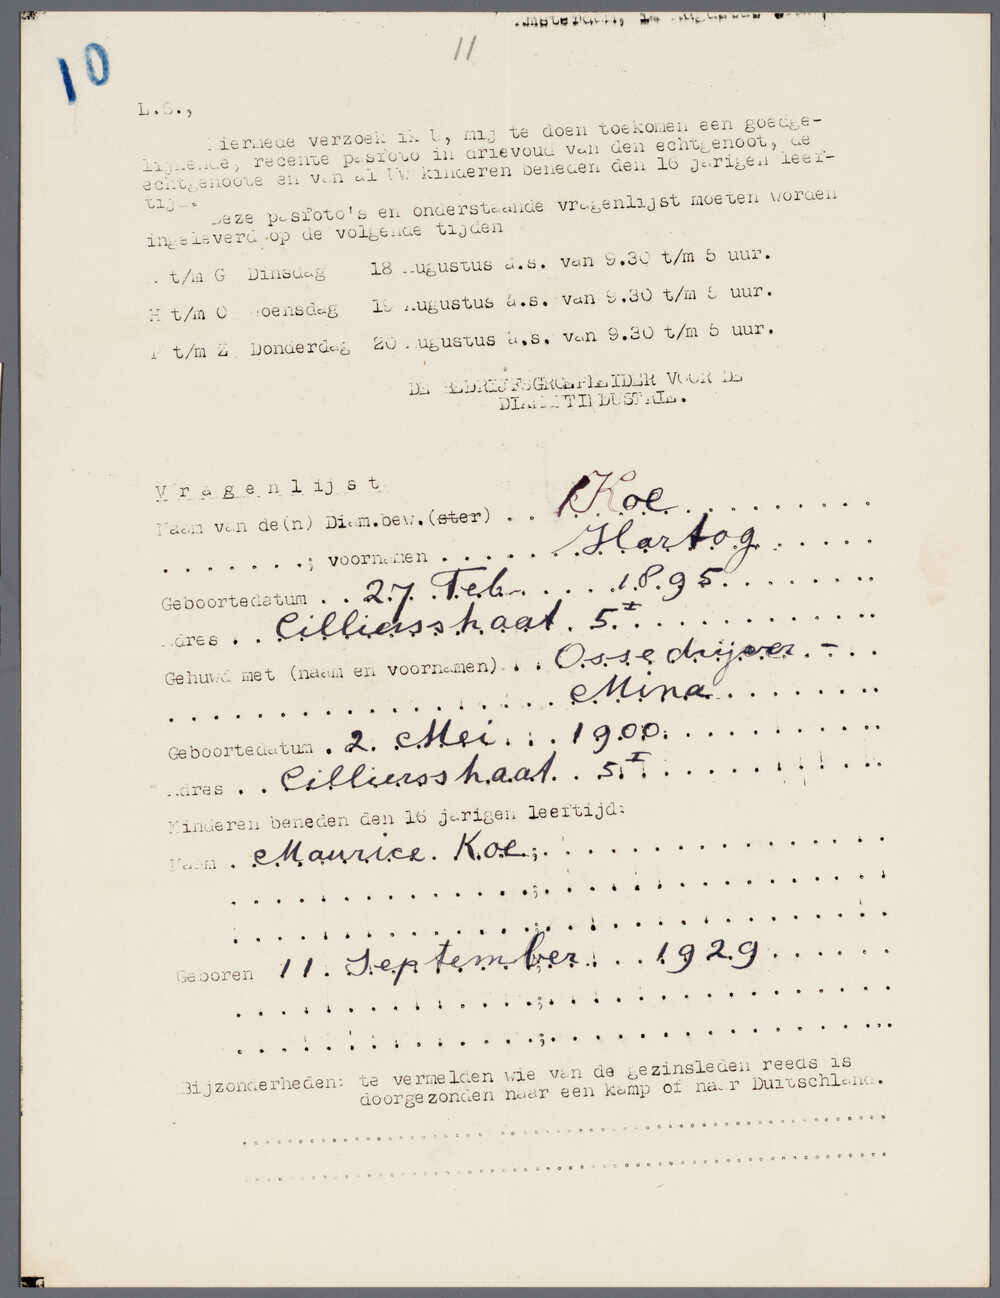 Amsterdam, 14 Augustus
11
10
L.S.,
Hiermede verzoek ik U, mij te doen toekomen een goedge-
lijkende, recente pasfoto in drievoud van den echtgenoot, de
echtgenoote en van al Uw kinderen beneden den 16 jarigen leef-
tijd.
Deze pasfoto's en onderstaande vragenlijst moeten worden
ingeleverd op de volgende tijden
t/m G Dinsdag 18 Augustus a.s. van 9.30 t/m 5 uur.
H t/m O Woensdag 19 Augustus a.s. van 9.30 t/m 5 uur.
P t/m Z Donderdag 20 Augustus a.s. van 9.30 t/m 5 uur.
DE BEDRIJFSGROEPLEIDER VOOR DE
DIAMANTINDUSTRIE.
Vragenlijst
Naam van de(n) Diam.bew.(ster) . . Koe . . . . . . . . . .
. . . . . . .; voornamen . . . . . . Hartog . . . . .
Geboortedatum . . 27 Feb. . . . . 1895 . . . . . . . .
Adres . . Cilliersstraat. 5 I . . . . . . . . . . . .
Gehuwd met (naam en voornamen) . . . Ossedrijver - . . .
. . . . . . . . . . . . . . . . . . Mina . . . . . . . .
Geboortedatum . 2. Mei . . . 1900. . . . . . . . . . .
Adres . . Cilliersstraat. . 5 I . . . . . . . . . . . .
Kinderen beneden den 16 jarigen leeftijd:
Naam . Maurice. Koe; . . . . . . . . . . . . . . . .
. . . . . . . . . . . . . . . . .; . . . . . . . . . . . . . . . . . .
. . . . . . . . . . . . . . . . .; . . . . . . . . . . . . . . . . . .
Geboren 11. September . . . 1929 . . . . . .
. . . . . . . . . . . . . . . . .; . . . . . . . . . . . . . . . . . .
. . . . . . . . . . . . . . . . .; . . . . . . . . . . . . . . . . . .
Bijzonderheden: te vermelden wie van de gezinsleden reeds is
doorgezonden naar een kamp of naar Duitschland.
................................................................
................................................................